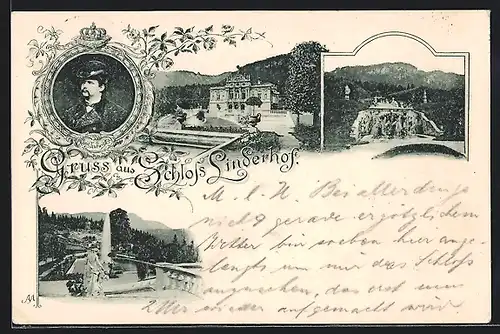 Gruss aus Schloss Linderhof.
M. l. H. Bei allerdings
nicht gerade ergötzlichem
Wetter bin soeben hier ange-
langt um mir das Schloss
anzusehen, das erst um
2 Uhr wieder aufgemacht wird.